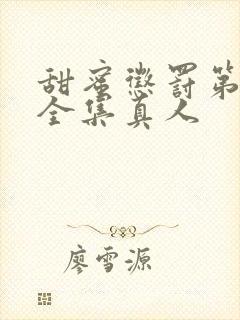 甜蜜惩罚第
全集真人
廖雪源